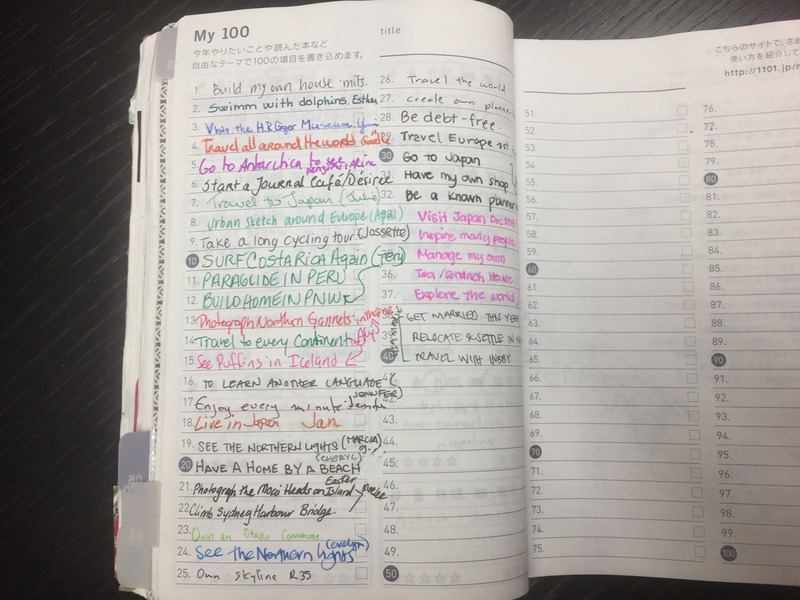 My 100
今年やりたいことや読んだ本など
自由なテーマで100の項目を書き込めます。
1. Build my own house. mits.
2. Swimm with dolphins. Esther
3. Visit the H.R. Giger Museum.
4. Travel all around the world
5. Go to Antarctica to see penguins
6. Start a Journal Café/Désirée
7. Travel to Japan (Julie)
8. Urban sketch around Europe (April)
9. Take a long cycling tour (Jossette)
10 SURF COSTA RICA Again (Tery)
11. PARAGLIDE IN PERU
12. BUILD HOME IN PNW
13. Photograph Northern Gannets in
14. Travel to every Continent
15. See Puffins in Iceland
16. TO LEARN ANOTHER LANGUAGE
(JENNIFER)
17. Enjoy every minute
18. Live in Japan Jan
19. SEE THE NORTHERN LIGHTS (MARCIA)
(CHERYL)
20 HAVE A HOME BY A BEACH
21. Photograph the Moai Heads on Easter Island
22. Climb Sydney Harbour Bridge.
23. Own an Otaku Commune
24. See the Northern Lights (Evelyn)
25. Own Skyline R35
title
26. Travel the world
27. create own
28. Be debt-free.
29. Travel Europe
30 Go to Japan
31. Have my own shop
32. Be a known planner
Visit Japan Dec
Inspire many people
Manage my own
36. Tea/Sandwich House
37. Explore the world
GET MARRIED THIS YEAR
39. RELOCATE & SETTLE IN
40 TRAVEL WITH HUBBY
42.
43.
44.
45.
46.
47.
48.
49.
50
こちらのサイトで、さま
使い方を紹介して
http://1101.jp/
51.
52.
53.
54.
55.
56.
57.
58.
59.
60
61.
62.
63.
64.
65.
66.
67.
68.
69.
70
71.
72.
73.
74.
75.
76.
77.
78.
79.
80
81.
82.
83.
84.
85.
86.
87.
88.
89.
90
91.
92.
93.
94.
95.
96.
97.
98.
99.
100